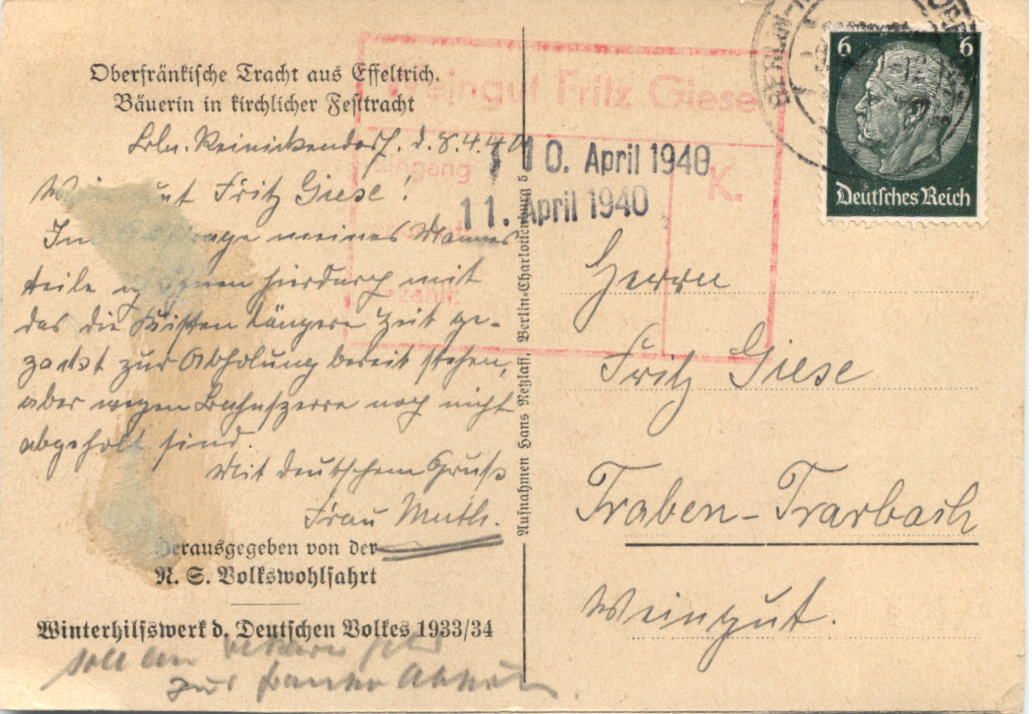 Oberfränkische Tracht aus Effeltrich.
Bäuerin in kirchlicher Festtracht
Bln. Reinickendorf, d. 8.4.40
Weingut Fritz Giese!
Im Auftrage meines Mannes
teile Ihnen hierdurch mit
das die Kisten längere Zeit ge-
packt zur Abholung bereit stehen,
aber wegen Bahnsperre noch nicht
abgeholt sind.
Mit deutschem Gruß
Frau Muth.
Herausgegeben von der
N. S. Volkswohlfahrt
Winterhilfswerk d. Deutschen Volkes 1933/34
soll den
zur franko
Aufnahmen Hans Retzlaff, Berlin-Charlottenburg 5
Weingut Fritz Giese
Eingang
K.
10. April 1940
11. April 1940
BERLIN
6 6
Deutsches Reich
Herrn
Fritz Giese
Traben-Trarbach
Weingut.